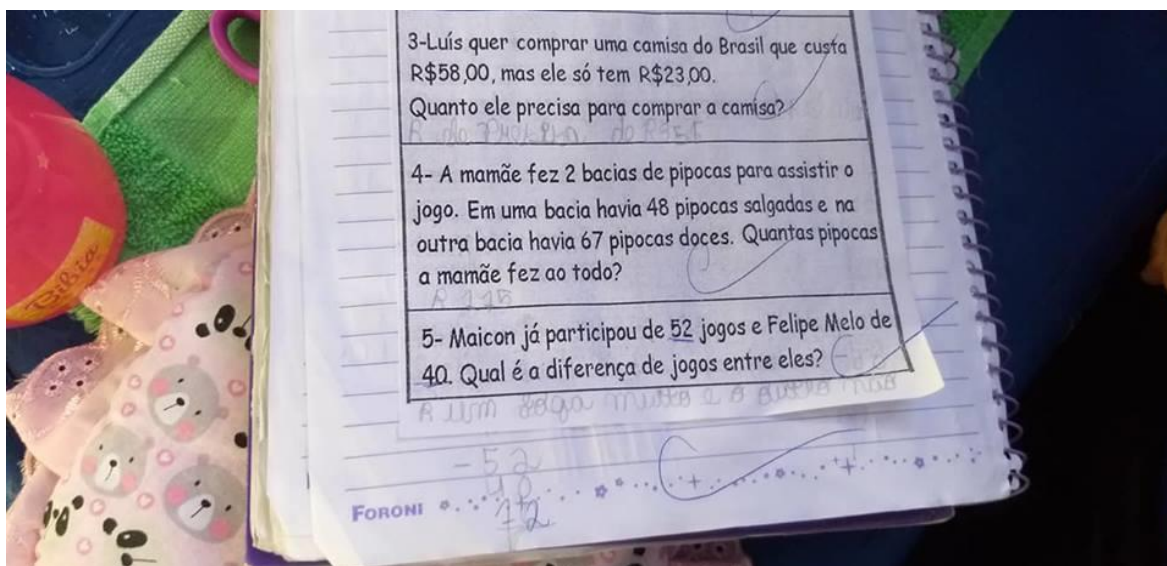 3-Luís quer comprar uma camisa do Brasil que custa
R$58,00, mas ele só tem R$23,00.
Quanto ele precisa para comprar a camisa?
R do
4- A mamãe fez 2 bacias de pipocas para assistir o
jogo. Em uma bacia havia 48 pipocas salgadas e na
outra bacia havia 67 pipocas doces. Quantas pipocas
a mamãe fez ao todo?
R 115
5- Maicon já participou de 52 jogos e Felipe Melo de
40. Qual é a diferença de jogos entre eles?
R um joga muito e o outro não
- 52
40
12
FORONI
Bibia